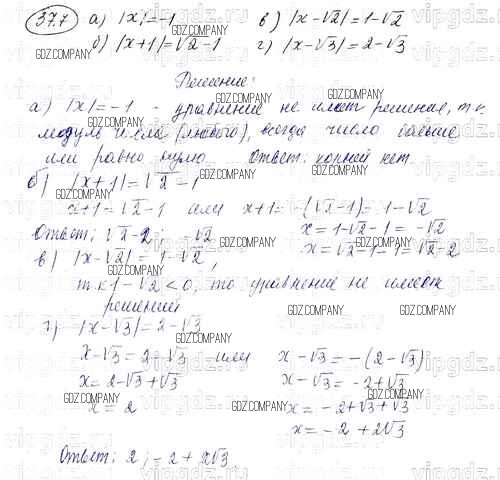 37.7 а) |x|=-1 в) |x-√2|=1-√2
б) |x+1|=√2-1 г) |x-√3|=2-√3
Решение:
а) |x|=-1 - уравнение не имеет решения, т.к.
модуль числа (любого), всегда число больше
или равно нулю. Ответ: корней нет.
б) |x+1|=√2-1
x+1=√2-1 или x+1=-(√2-1)=1-√2
x=√2-1-1=√2-2
x=1-√2-1=-√2
Ответ: √2-2; -√2
в) |x-√2|=1-√2,
т.к 1-√2<0, то уравнение не имеет
решений
г) |x-√3|=2-√3
x-√3=2-√3 или x-√3=-(2-√3)
x=2-√3+√3 x-√3=-2+√3
x=2 x=-2+√3+√3
x=-2+2√3
Ответ: 2; -2+2√3
GDZ.COMPANY
vipgdz.ru